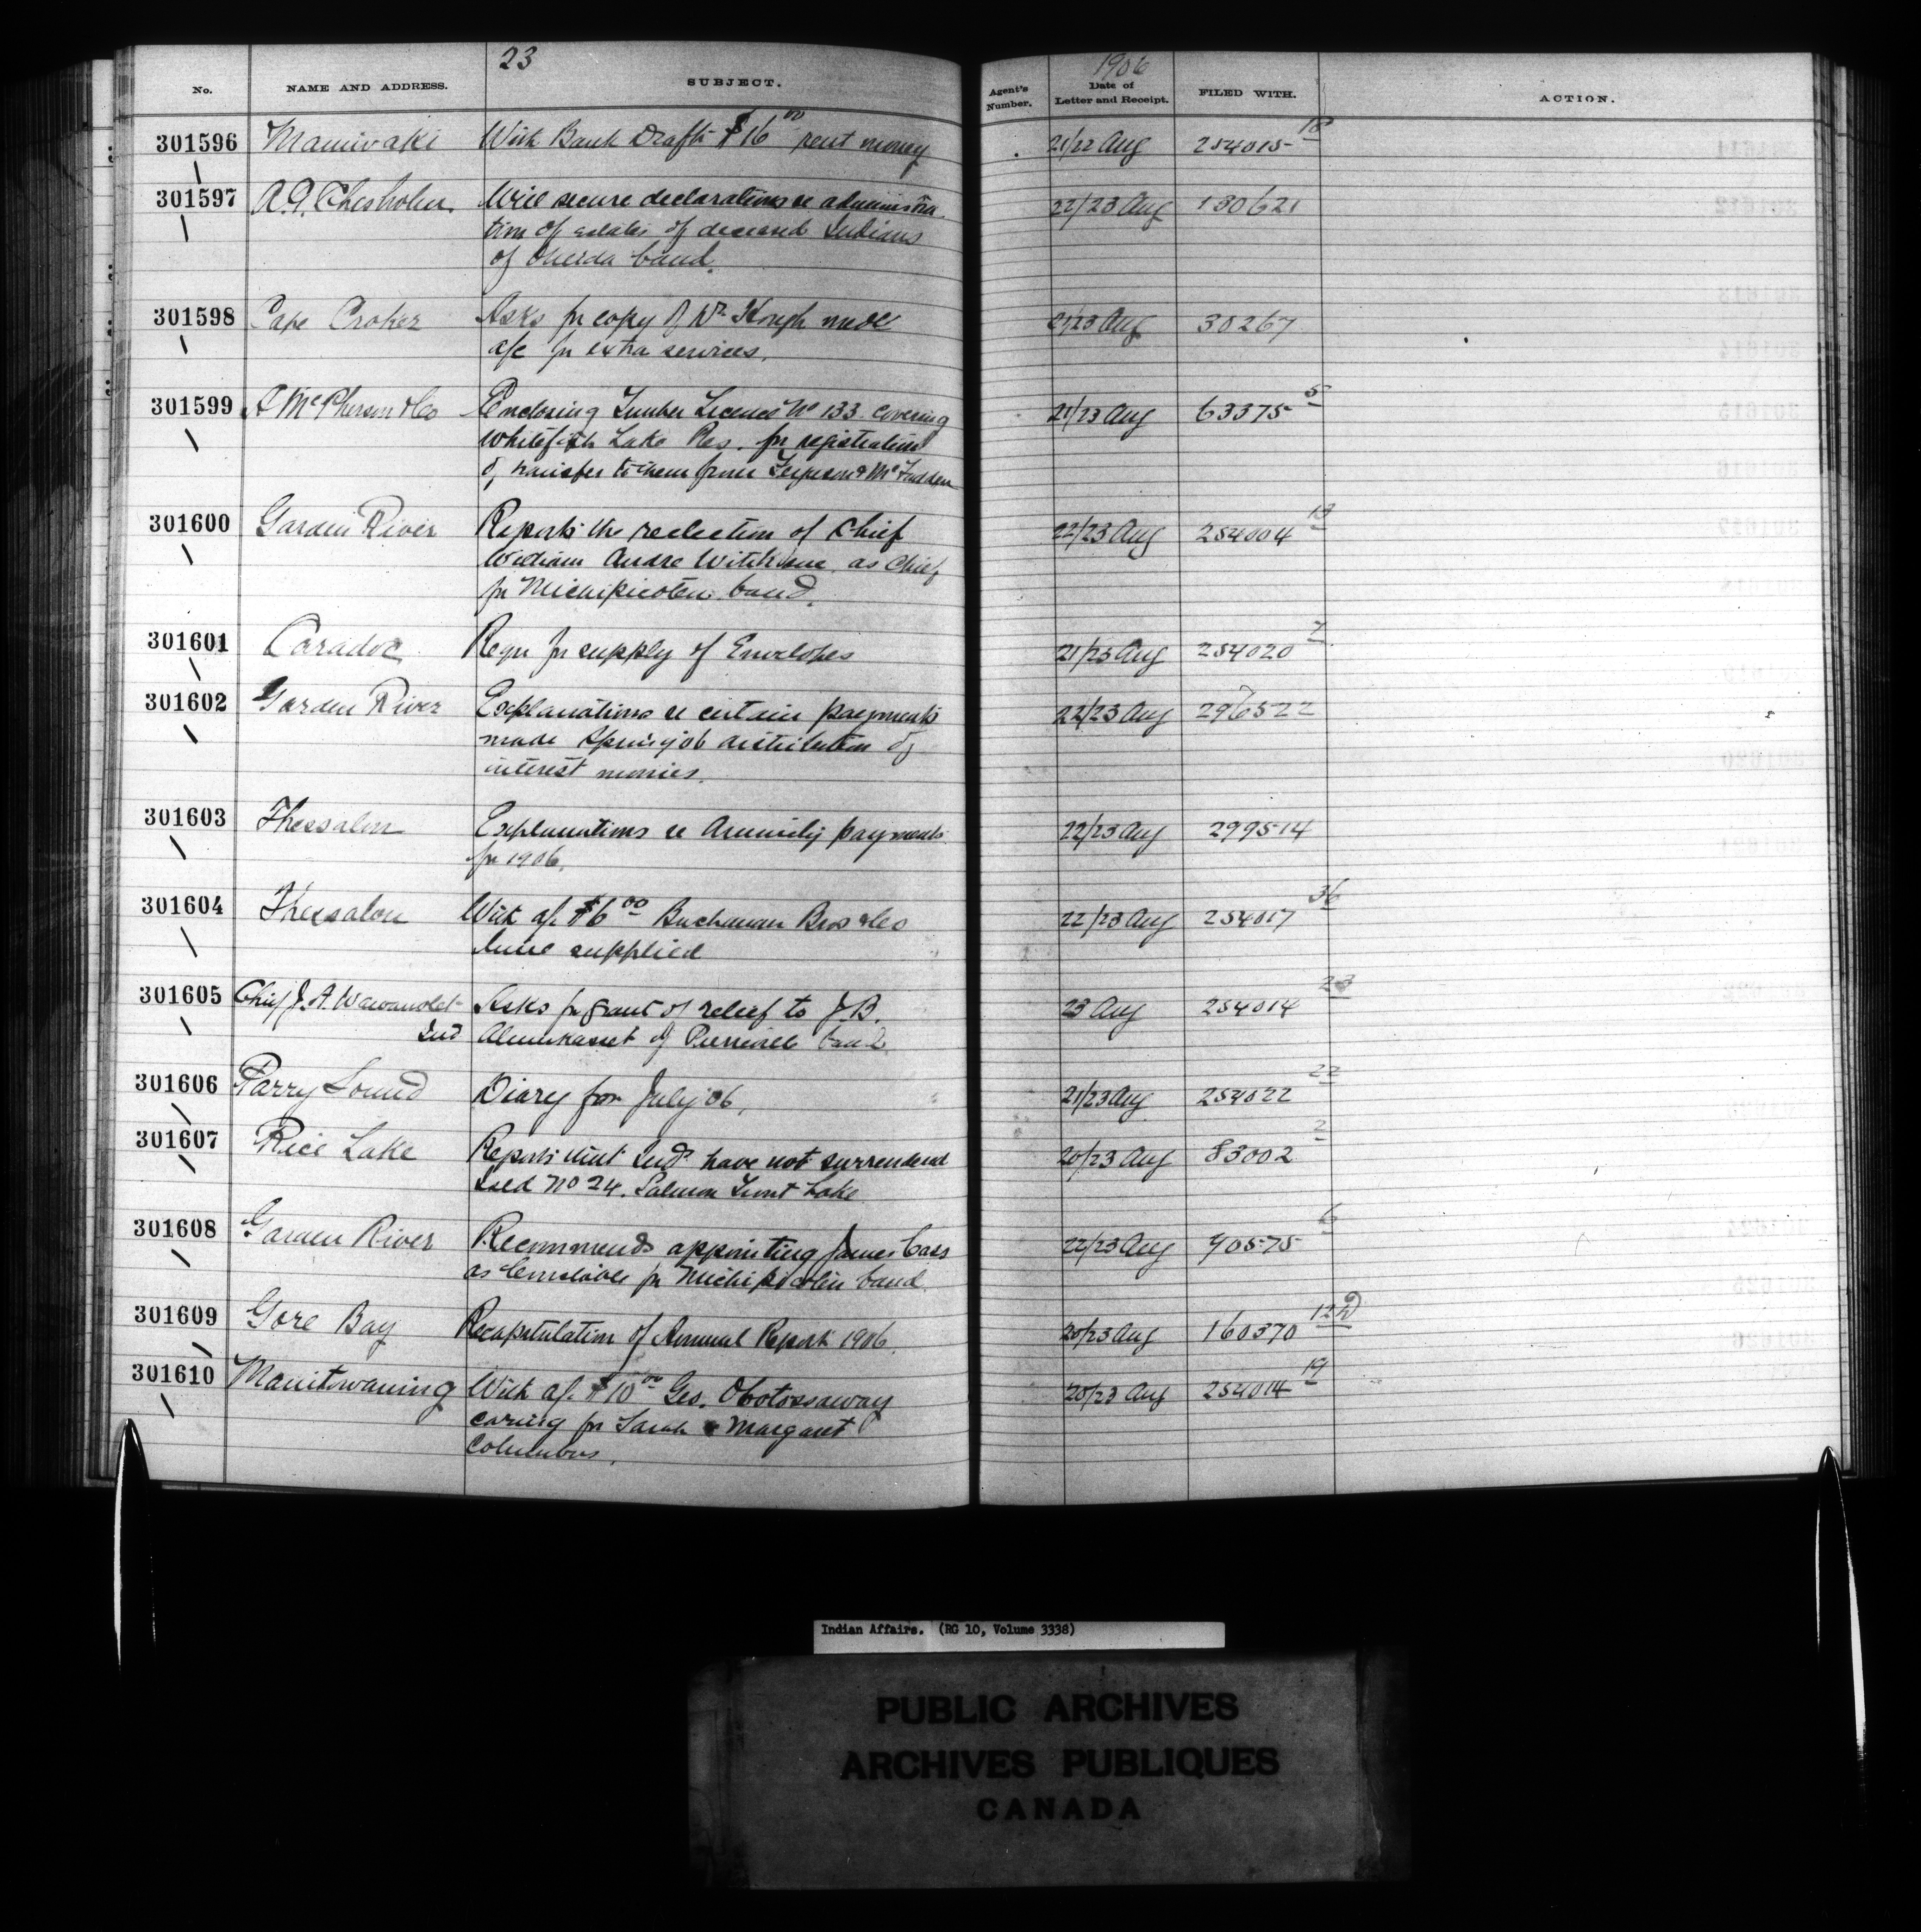 23
1906
No. NAME AND ADDRESS. SUBJECT. Agent's Number. Date of Letter and Receipt. FILED WITH. ACTION.
301596 Maniwaki With Bank Draft $16 00 rent money 21/22 Aug 254015 18
301597 A.G. Chisholm Will secure declarations re administra 22/23 Aug 130621
tion of estates of deceased Indians
of Oneida band.
301598 Cape Croker Asks for copy of Dr. Hough med 21/23 Aug 30267
a/c for extra services.
301599 A McPherson & Co Enclosing Timber License No 133 covering 21/23 Aug 63375 5
Whitefish Lake Res. for registration
of transfer to them from Ferguson & McFadden
301600 Garden River Reports the reelection of Chief 22/23 Aug 254004 13
William Andre as Chief
for Michipicoten band.
301601 Caradoc Requ for supply of Envelopes 21/23 Aug 254020 7
301602 Garden River Explanations re certain payments 22/23 Aug 296522
made Spring '06 distribution of
interest monies.
301603 Thessalon Explanations re Annuity payments 22/23 Aug 299514
for 1906.
301604 Thessalon With a/c $6 00 Buchanan Bros & Co 22/23 Aug 254017 36
lime supplied
301605 Chief J. A. Asks for grant of relief to J.B. 23 Aug 254014 23
Ind of band.
301606 Parry Sound Diary for July '06. 21/23 Aug 254022 22
301607 Rice Lake Reports that Inds have not surrendered 20/23 Aug 83002 2
Isld No 24. Salmon Trout Lake
301608 Garden River Recommends appointing James Cass 22/23 Aug 90575 6
as Constable for Michipicoten band.
301609 Gore Bay Recapitulation of Annual Report 1906. 20/23 Aug 160370 12
301610 Manitowaning With a/c $10 00 Geo. Obotossaway 20/23 Aug 254014 19
caring for Sarah & Margaret
Columbus.
Indian Affairs. (RG 10, Volume 3338)
PUBLIC ARCHIVES
ARCHIVES PUBLIQUES
CANADA